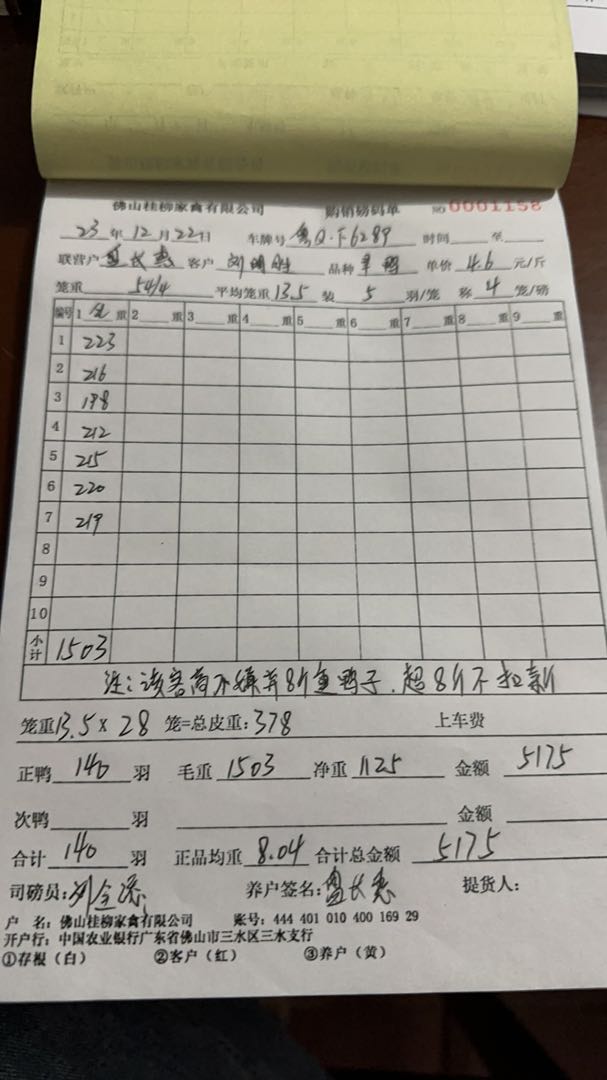 佛山桂柳家禽有限公司 购销磅码单 NO 0001158
23年12月22日 车牌号 粤Q·F6289 时间 至
联营户 盘长惠 客户 品种 单价 4.6 元/斤
笼重 54/4 平均笼重 13.5 装 5 羽/笼 称 4 笼/磅
编号 1 重 2 重 3 重 4 重 5 重 6 重 7 重 8 重 9 重
1 223
2 216
3 198
4 212
5 215
6 220
7 219
8
9
10
小计 1503
注:该客商不嫌弃8斤重鸭子,超8斤不扣
笼重 13.5 × 28 笼=总皮重:378 上车费
正鸭 140 羽 毛重 1503 净重 1125 金额 5175
次鸭 羽 金额
合计 140 羽 正品均重 8.04 合计总金额 5175
司磅员: 养户签名:盘长惠 提货人:
户 名:佛山桂柳家禽有限公司 账号:444 401 010 400 169 29
开户行:中国农业银行广东省佛山市三水区三水支行
①存根(白) ②客户(红) ③养户(黄)